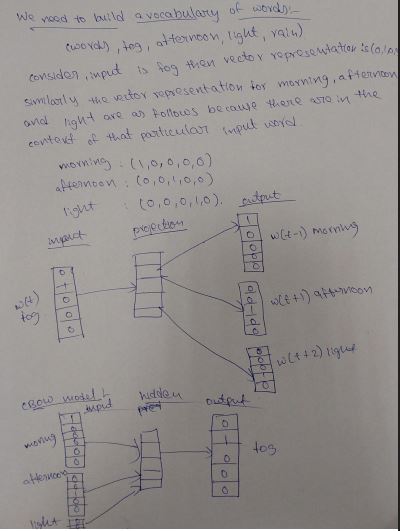 We need to build a vocabulary of words:-
(words, fog, afternoon, light, rain)
consider, input is fog then vector representation is (0,1,0,0
similarly the vector representation for morning, afternoon
and light are as follows because there are in the
context of that particular input word.
morning : (1,0,0,0,0)
afternoon : (0,0,1,0,0)
light : (0,0,0,1,0).
input projection output
1
0
0
0
0
w(t-1) morning
w(t)
fog
0
1
0
0
0
0
0
1
0
0
w(t+1) afternoon
0
0
0
1
0
w(t+2) light
CBOW model:
input hidden output
moring
1
0
0
0
0
0
1
0
0
0
fog
afternoon
0
0
1
0
0
light